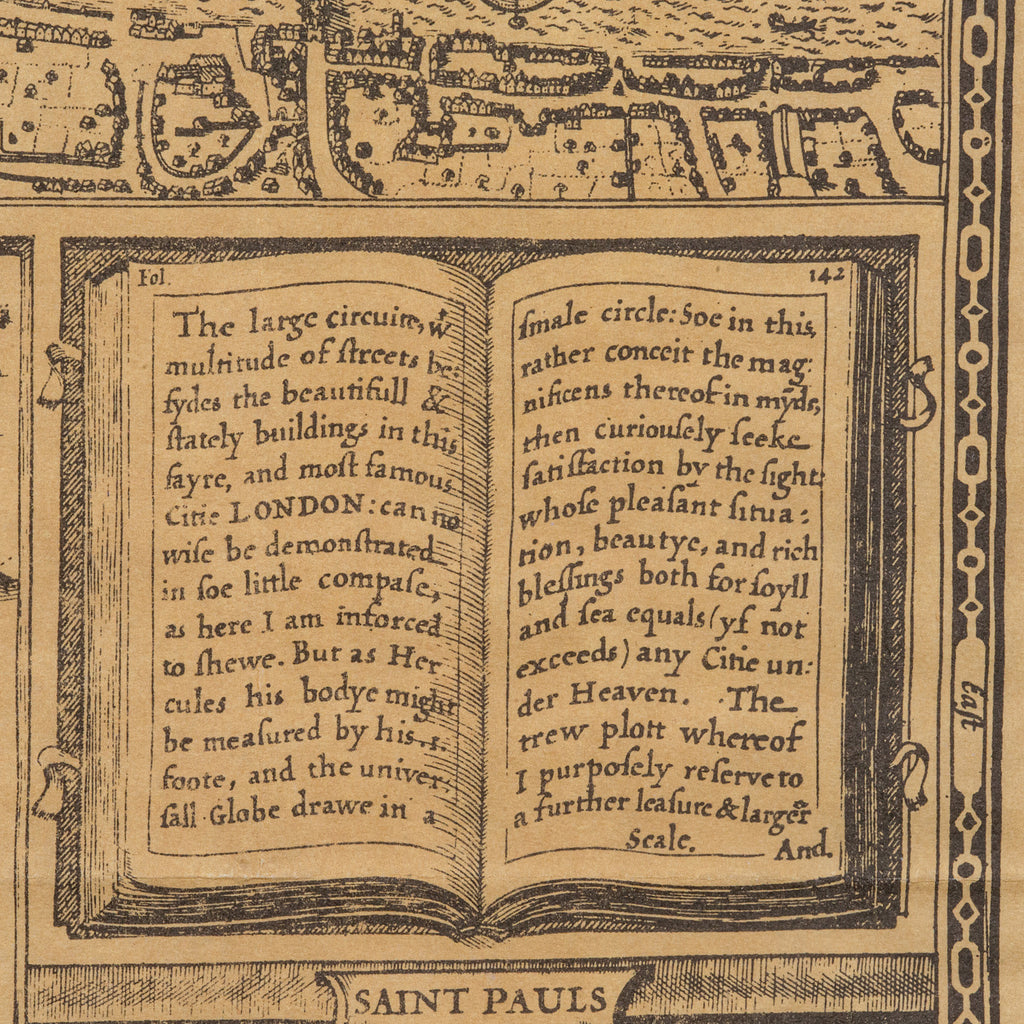 Fol.
The large circuite, wͭ
multitude of ſtreets be:
ſydes the beautifull &
ſtately buildings in this
fayre, and moſt famous
Citie LONDON: can no
wiſe be demonſtrated
in ſoe little compaſe,
as here I am inforced
to ſhewe. But as Her
cules his bodye might
be meaſured by his
foote, and the univer:
ſall Globe drawe in a
142
ſmale circle: Soe in this,
rather conceit the mag:
nificens thereof in mynds,
then curiouſely ſeeke
ſatiſfaction by the ſight:
whoſe pleaſant ſitua:
tion, beautye, and rich
bleſſings both for ſoyll
and ſea equals (yf not
exceeds) any Citie un:
der Heaven. The
trew plott whereof
I purpoſely reſerve to
a further leaſure & larger
Scale. And.
Eaſt
SAINT PAULS